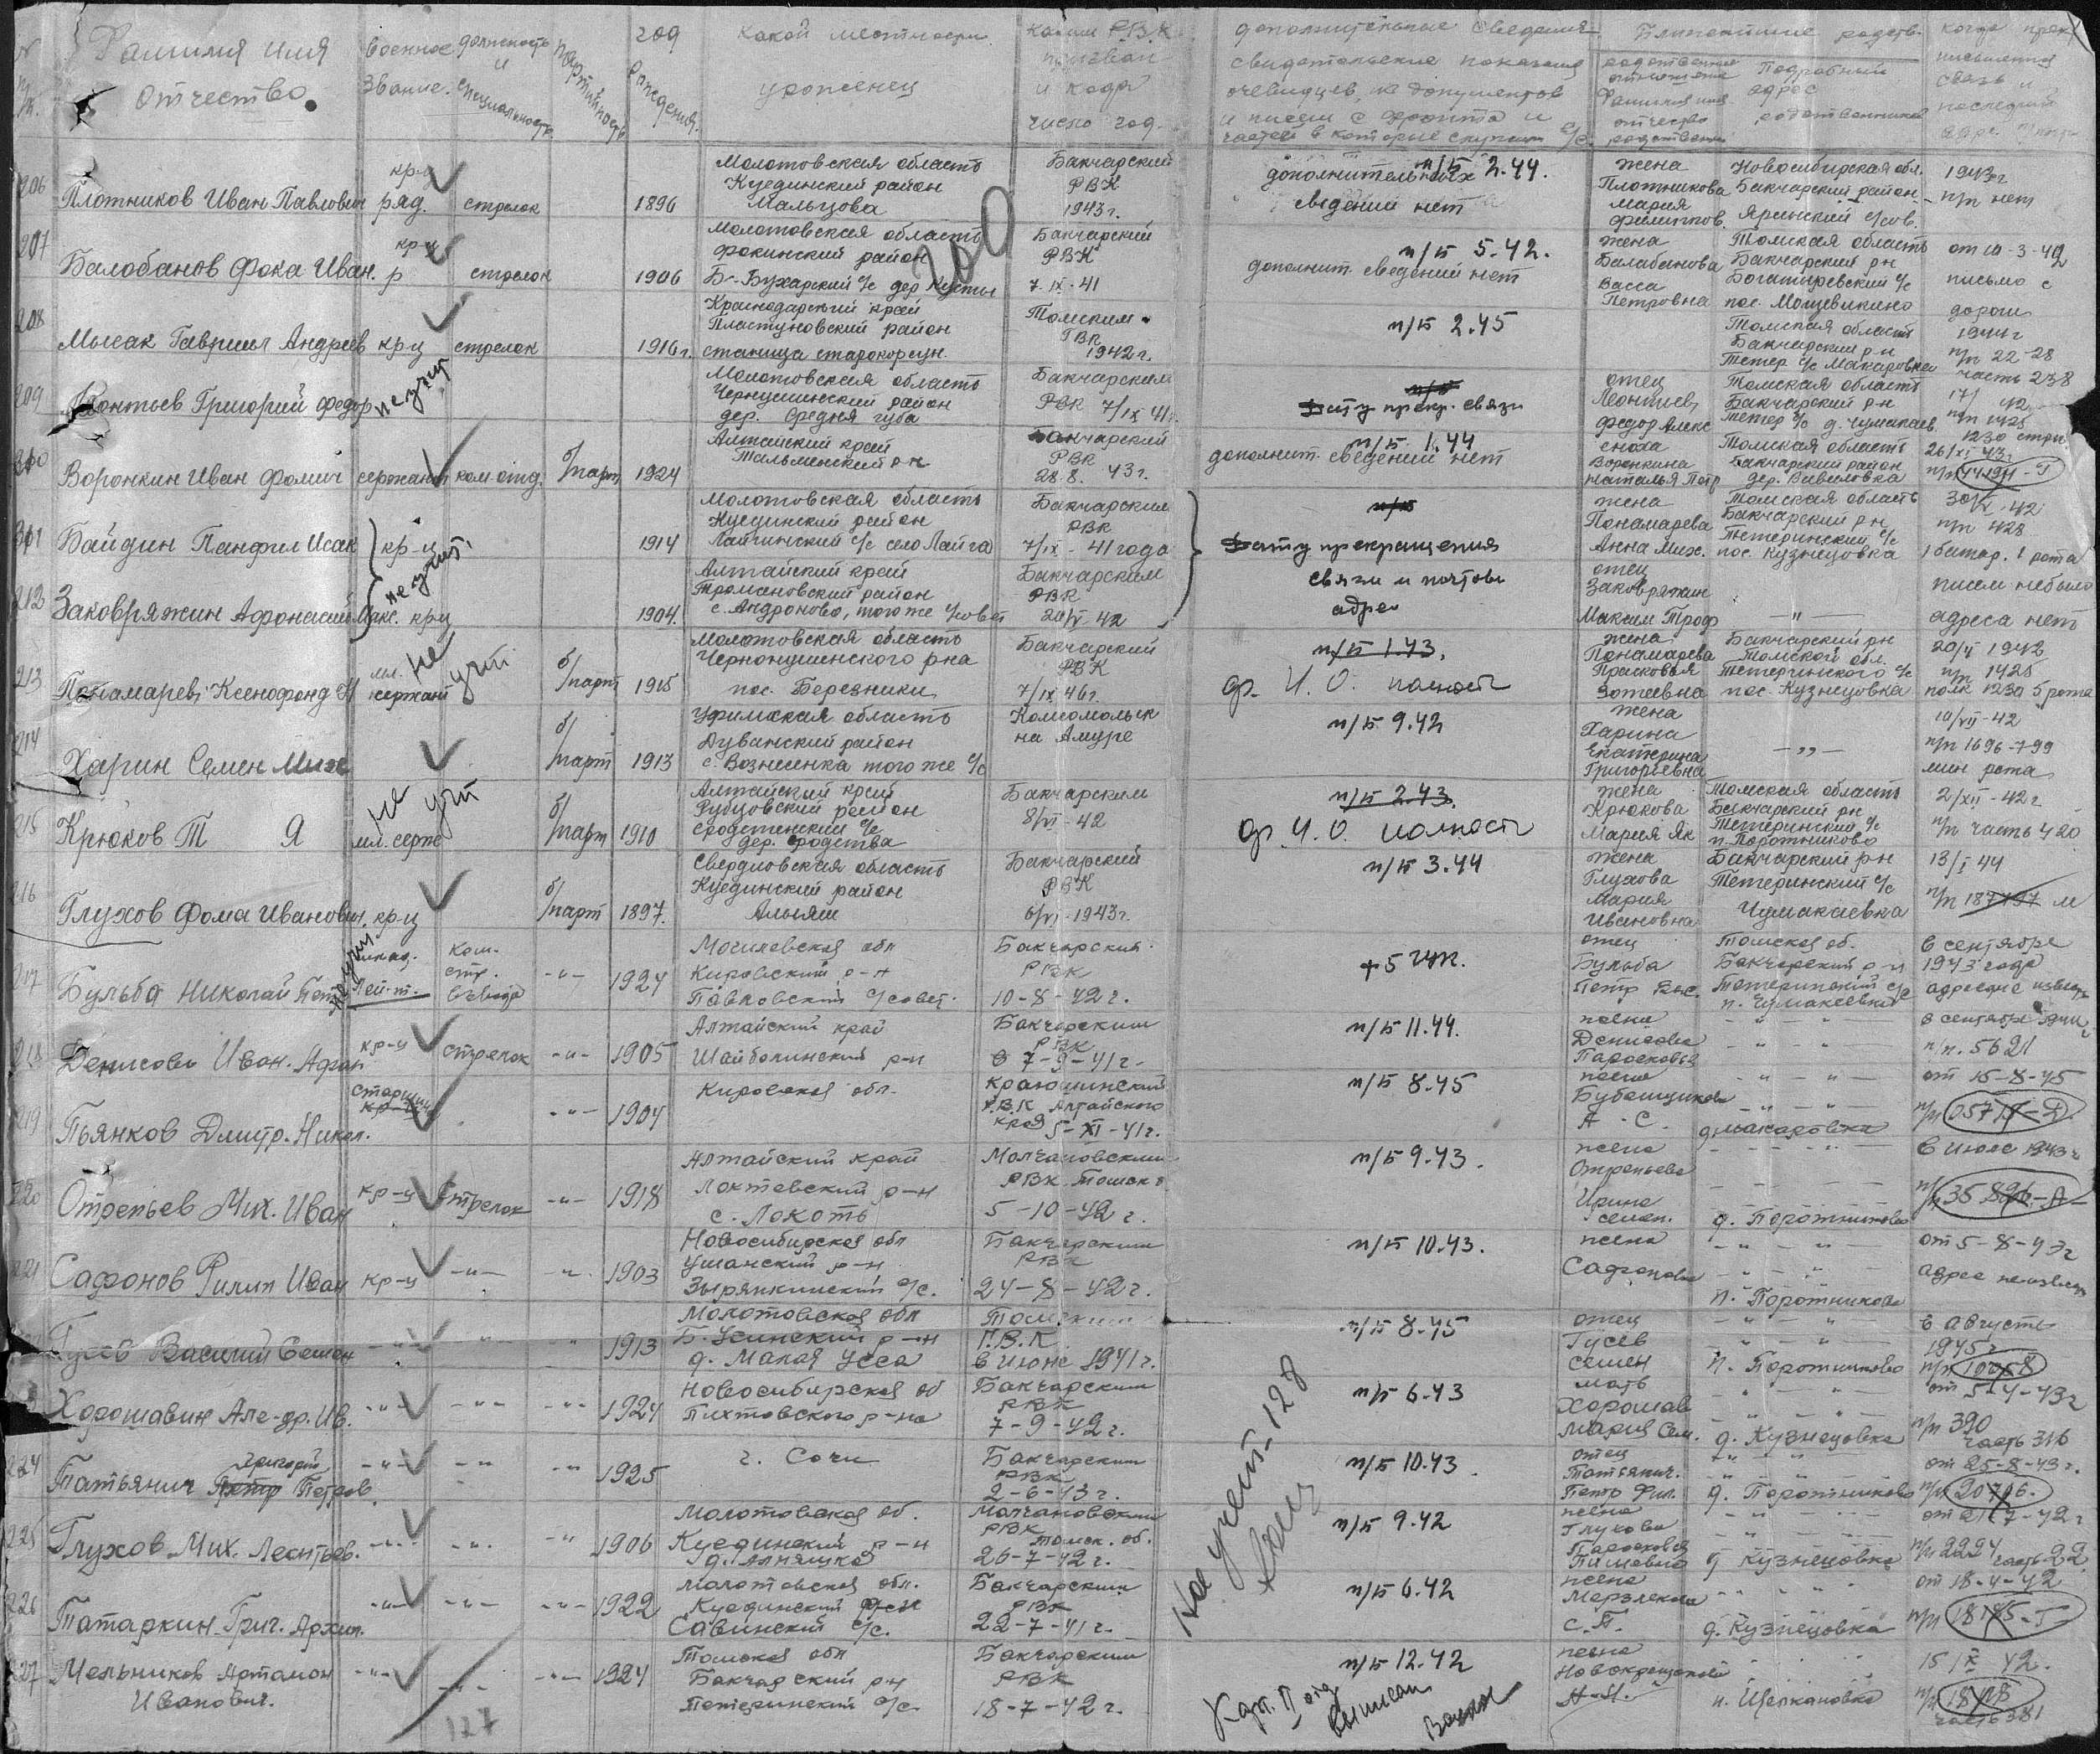 N п/п. Фамилия имя отчество. военное звание. должность и специальность партийность год рождения. какой местности уроженец каким РВК призван и когда число год.
дополнительные сведения свидетельские показания очевидцев, из документов и писем с фронта и частей в которые служит
Ближайшие родств. родственные отношения Фамилия имя отчество родственника Подробный адрес родственников
когда прек. письменная связь и последний адрес
206 Плотников Иван Павлович кр-ц ряд. стрелок 1896 Молотовская область Куединский район Мальцова Бакчарский РВК 1943г. п/б 2.44. дополнительных сведений нет жена Плотникова Мария Филиппов. Новосибирская обл. Бакчарский район Яринский с/сов. 1943г п/п нет
207 Балобанов Фока Иван. кр-ц р стрелок 1906 Молотовская область Фокинский район Б-Бухарский с/с дер Кусты Бакчарский РВК 7.IX-41 п/б 5.42. дополнит. сведений нет жена Балабанова Васса Петровна Томская область Бакчарский рн Богатыревский с/с пос. Мощевикино от 10-3-42 письмо с дороги
200
208 Мысак Гавриил Андреев кр-ц стрелок 1916г. Краснодарский край Пластуновский район станица старокорсун. Томским ГВК 1942г. п/б 2.45 Томская область Бакчарский рн Тетер с/с Макаровка 1944г п/п 22-28 часть 238
209 Леонтьев Григорий Федор не учит Молотовская область Чернушинский район дер. Средня губа Бакчарским РВК 7/IX 41г. п/б Дату прекр. связи отец Леонтьев Федор Алекс Томская область Бакчарский рн Тетер с/с д. Чумакаев 17/ 42 п/п 1425 1230 стрп
210 Воронкин Иван Фомич сержант ком. отд. б/парт 1924 Алтайский край Тальменский рн Бакчарский РВК 28.8. 43г. п/б 1.44 дополнит. сведений нет сноха Воронкина Наталья Петр Томская область Бакчарский район дер. Вавиловка 26/XI 43г. п/п
211 Байдин Панфил Исак кр-ц не учит. 1914 Молотовская область Куединский район Лайгинский с/с село Лайга Бакчарским РВК 7/IX-41 года п/б Дату прекращения связи и почтовы адрес жена Понамарева Анна Мих. Томская область Бакчарский рн Тетеринский с/с пос. Кузнецовка 30/IX-42 п/п 428 1 батар. 1 рота
212 Заковряжин Афонасий Макс. кр-ц 1904. Алтайский край Тромановский район с. Андроново, того же с/совет Бакчарским РВК 20/V 42 отец Заковряжин Максим Троф -"- писем небыло адреса нет
213 Понамарев Ксенофонд Н мл. сержант не учит б/парт 1915 Молотовская область Чернонушенского рна пос. Березники Бакчарский РВК 7/IX 46г. п/б 1.43. ф. И. О. полность жена Понамарева Прасковья Зотеевна Бакчарский рн Томской обл. Тетеринского с/с пос. Кузнецовка 20/V 1942 п/п 1425 полк 1230 5 рота
214 Харин Семен Мих б/парт 1913 Уфимская область Дуванский район с. Вознесенка того же с/с Комсомольск на Амуре п/б 9.42 жена Харина Екатерина Григорьевна -"- 10/VII-42 п/п 1696-799 мин рота
215 Крюков Т Я мл. серж не учит б/парт 1910 Алтайский край Рубцовский район сродстенский с/с дер. сродства Бакчарским 8/VI-42 п/б 2.43. ф. И. О. полность жена Крюкова Мария Як Томская область Бакчарский рн Тетеринский с/с п. Поротниково 2/XII-42г п/п часть 420
216 Глухов Фома Иванович кр-ц б/парт 1897. Свердловская область Куединский район Альняш Бакчарский РВК 6/VI-1943г. п/б 3.44 жена Глухова Мария Ивановна Бакчарский рн Тетеринский с/с Чумакаевка 13/I 44 п/п 187
217 Бульба Николай Петр не учит Лей-т. ком. стр. взвода -"- 1924 Могилевская обл Кировский р-н Павловский с/совет. Бакчарский РВК 10-8-42г. отец Бульба Петр Вас. Томская об. Бакчарский р-н Тетеринский с/с п. Чумакеевка в сентябре 1943 года адрес не известен
218 Денисов Иван. Афан кр-ц стрелок -"- 1905 Алтайский край Шайболинский р-н Бакчарским РВК в 7-9-41г- п/б 11.44. жена Денисова Парасковья - " - " - в сентябре 1944 п/п. 5621
219 Пьянков Дмитр. Никол. старшина кр-ц -"- 1904 Кировская обл. Краюшинский Р.В.К Алтайского края 5-XI-41г. п/б 8.45 жена Бубенщикова А-С. - " - " - д. Макаровка от 15-8-45 п/п
220 Отрепьев Мих. Иван кр-ц стрелок -"- 1918 Алтайский край Локтевский р-н с. Локоть Молчановским РВК. Томск. 5-10-42г. п/б 9.43. жена Отрепьева Ирина семен. - " - д. Поротниково в июле 1943г п/п 35896-А
221 Сафонов Филип Иван кр-ц -"- -"- 1903 Новосибирская обл Ушанский р-н Зырянкинский с/с. Бакчарским РВК 24-8-42г. п/б 10.43. жена Сафонова - " - " - п. Поротниково от 5-8-43г адрес неизвестен
Гусев Василий Семен -"- -"- " 1913 Молотовская обл Б. Усинский р-н д. Малая Усса Томским Г.В.К в июне 1941г. п/б 8.45 отец Гусев семен - " - " - п. Поротниково в августе 1945г п/п
Хорошавин Але-др. Ив. -"- -"- -"- 1924 Новосибирская об Пихтовского р-на Бакчарским РВК 7-9-42г. п/б 6.43 мать Хорошав Мария Сем. - " - " - д. Кузнецовка от 5-4-43г п/п 390 часть 316
224 Татьянич Петр Григорий Петров. -"- -"- -"- 1925 г. Сочи Бакчарским РВК 2-6-43г. п/б 10.43. отец Татьянич. Петр Фил. - " - " - д. Поротниково от 25-8-43г. п/п 20706.
225 Глухов Мих. Леонтьев. -"- -"- -"- 1906 Молотовская об. Куединский р-н д. Альняшка Молчановским РВК Томск. об. 26-7-42г. п/б 9.42 жена Глухова Парасковья - " - д Кузнецовка от 21-7-42г п/п 2224 часть 22
226 Татаркин Григ. Архип. -"- -"- -"- 1922 Молотовская обл. Куединский р-н Савинский с/с. Бакчарским РВК 22-7-41г. п/б 6.42 жена Мерзлякова С.П. - " - " д. Кузнецовка от 18-4-42 п/п
227 Мельников Артамон Иванович. -"- -"- -"- 1924 Томская обл Бакчарский рн Тетеринский с/с. Бакчарским РВК 18-7-42г. п/б 12.42 жена Новокрещенова А-И. п. Щепкановка 15/X 42. п/п часть 381
На учет-128
127
Карт. II отд
выписал